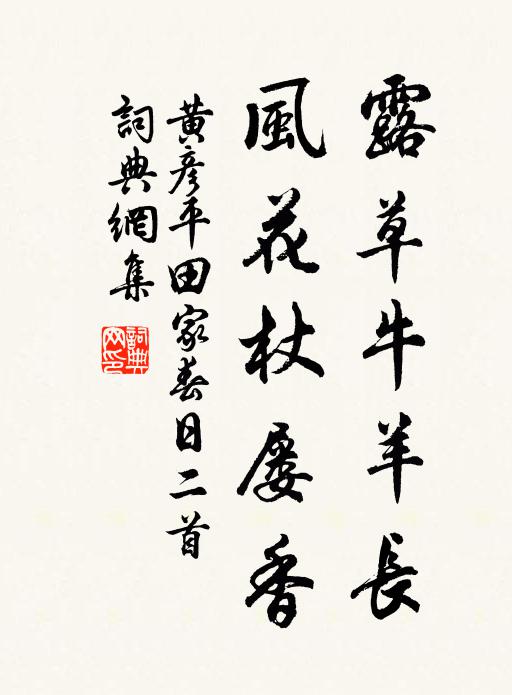 露草牛羊長
風花杖屨香
黃彥平田家春日二首
詞典網集
詞典網印